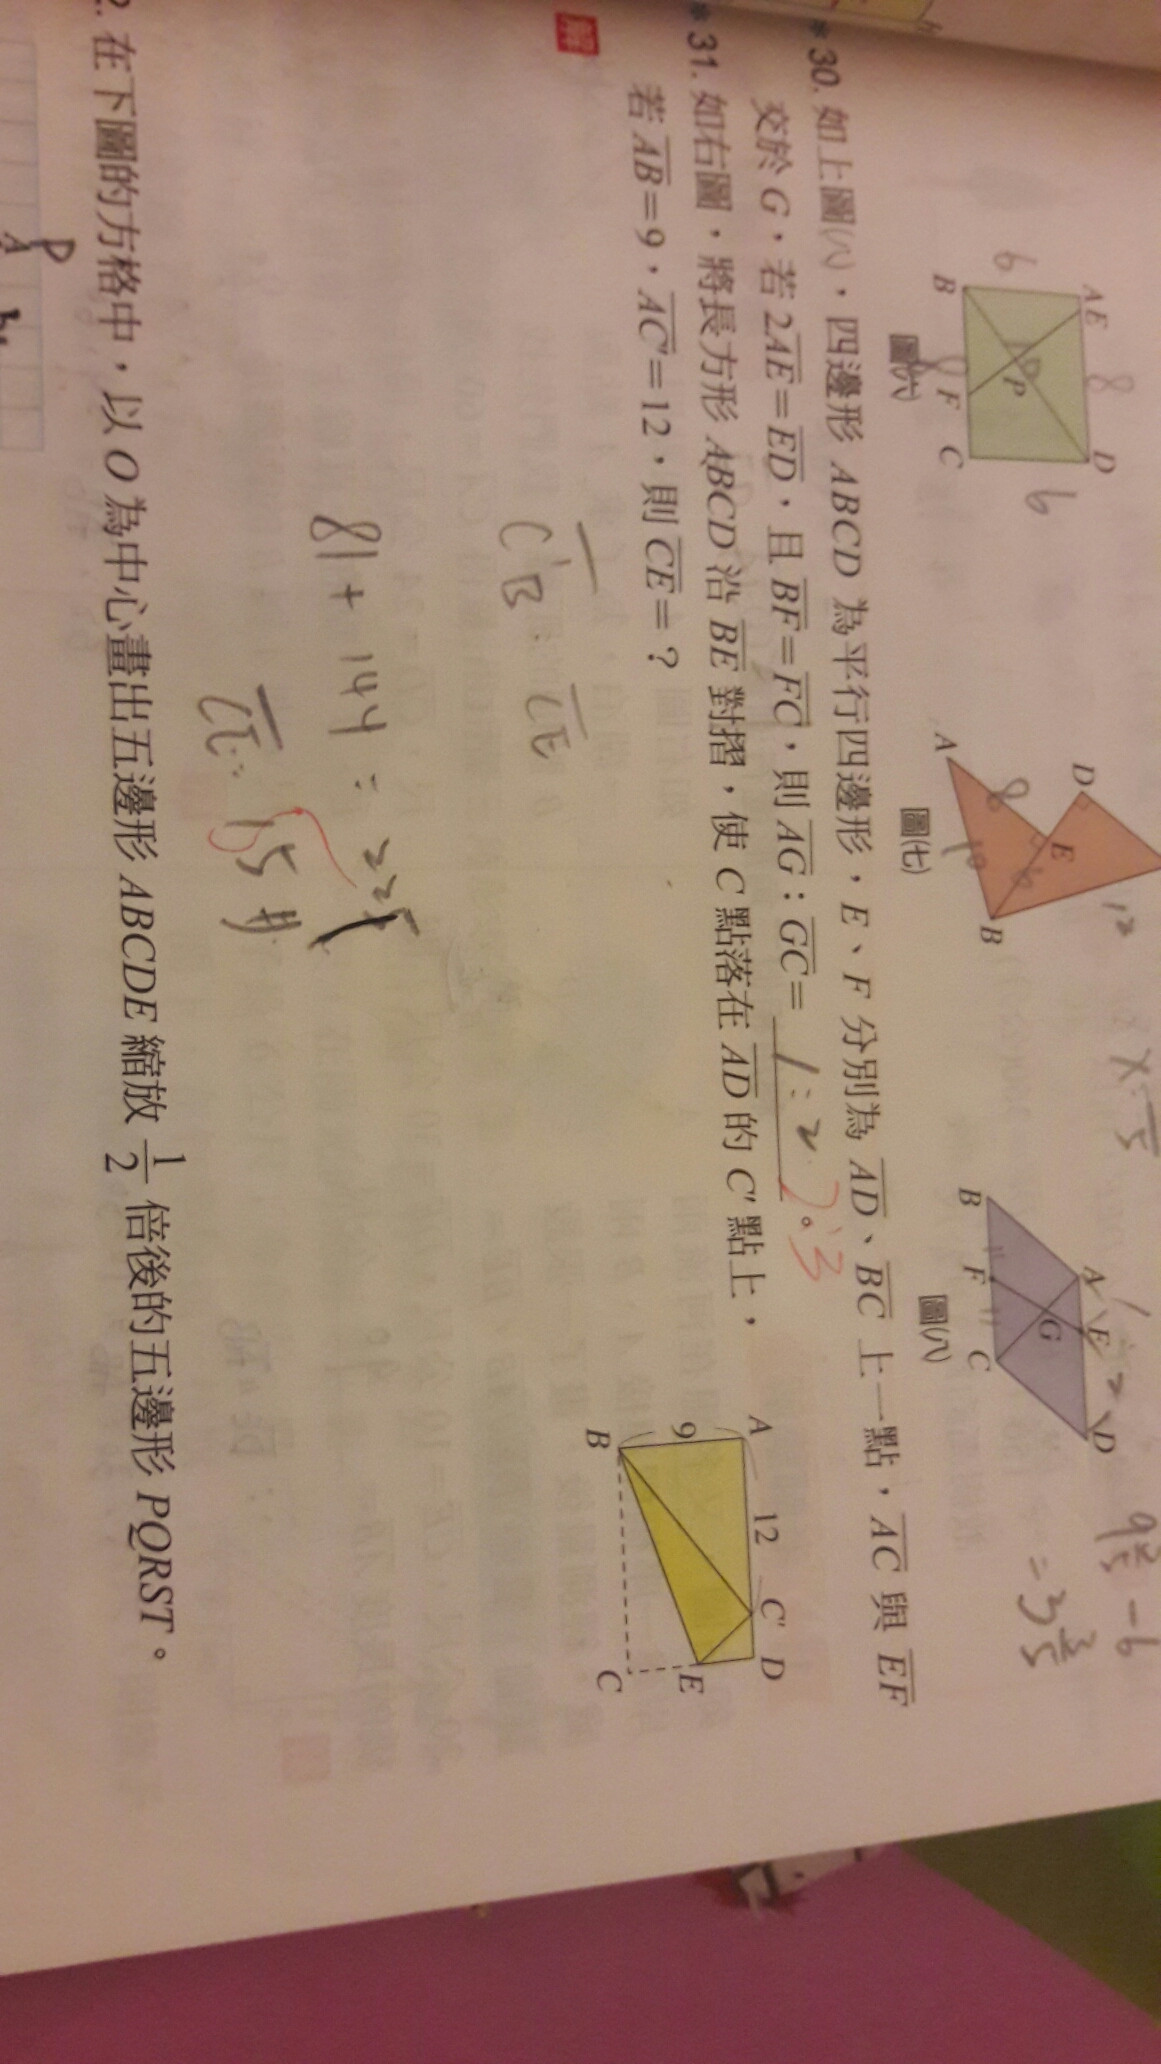 6
8
8
10
6
A E D
P
B F C
圖(六)
D
8
E
6
10
A
B
12
圖(七)
1
2
A E D
G
B F C
圖(八)
-6
30. 如上圖(八),四邊形 ABCD 為平行四邊形,E、F 分別為 AD、BC 上一點,AC 與 EF
交於 G,若 2AE=ED,且 BF=FC,則 AG:GC= 1:2 。 2:3
31. 如右圖,將長方形 ABCD 沿 BE 對摺,使 C 點落在 AD 的 C' 點上,
若 AB=9,AC'=12,則 CE=?
A 12 C' D
9
E
B C
解
C'B = CE
81+144=225
CE=15#
2. 在下圖的方格中,以 O 為中心畫出五邊形 ABCDE 縮放 1/2 倍後的五邊形 PQRST。
P
A